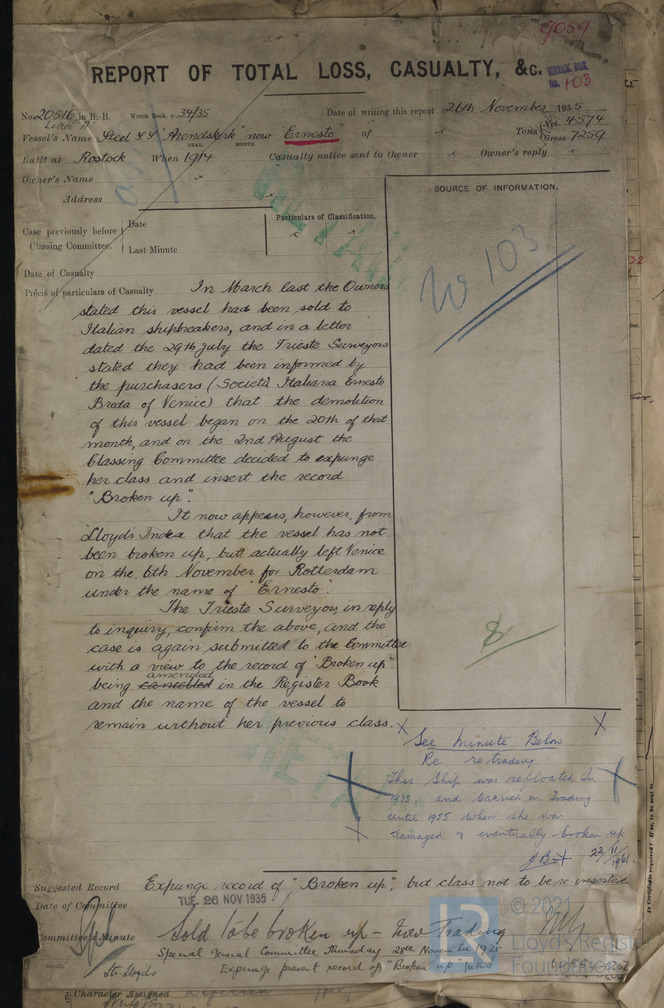 9059
REPORT OF TOTAL LOSS, CASUALTY, &c.
WRECK BOX
No. 103
No. 20516 in R. B. Wreck Book, p. 34/35 Date of writing this report 26th November 1935
Letter A
Vessel's Name Steel SS "Arendskerk" now "Ernesto" of Tons Net 4574
Gross 7259
YEAR. MONTH.
Built at Rostock When 1914 Casualty notice sent to Owner Owner's reply
Owner's Name
Address
SOURCE OF INFORMATION.
Case previously before Classing Committee.
Date
Last Minute
Particulars of Classification.
RETAIN
W 103
Date of Casualty
Précis of particulars of Casualty In March last the Owners
stated this vessel had been sold to
Italian shipbreakers, and in a letter
dated the 29th July the Trieste Surveyors
stated they had been informed by
the purchasers (Società Italiana Ernesto
Breda of Venice) that the demolition
of this vessel began on the 20th of that
month, and on the 2nd August the
Classing Committee decided to expunge
her class and insert the record
"Broken up".
It now appears, however, from
Lloyd's Index that the vessel has not
been broken up, but actually left Venice
on the 6th November for Rotterdam
under the name of "Ernesto".
The Trieste Surveyors, in reply
to inquiry, confirm the above, and the
case is again submitted to the Committee
with a view to the record of "Broken up"
being cancelled amended in the Register Book
and the name of the vessel to
remain without her previous class.
RETAIN
See Minute Below
Re re trading
This Ship was refloated in
1935, and carried on Trading
until 1955 when she was
damaged & eventually broken up
22/11/1961
Suggested Record Expunge record of "Broken up", but class not to be re-inserted
Date of Committee TUE. 26 NOV 1935
Committee's Minute Sold to be broken up - Now Trading
Special General Committee Thursday 28th November 1935
Expunge present record of "Broken up"
Character Assigned
© 2021
Lloyd's Register
Foundation